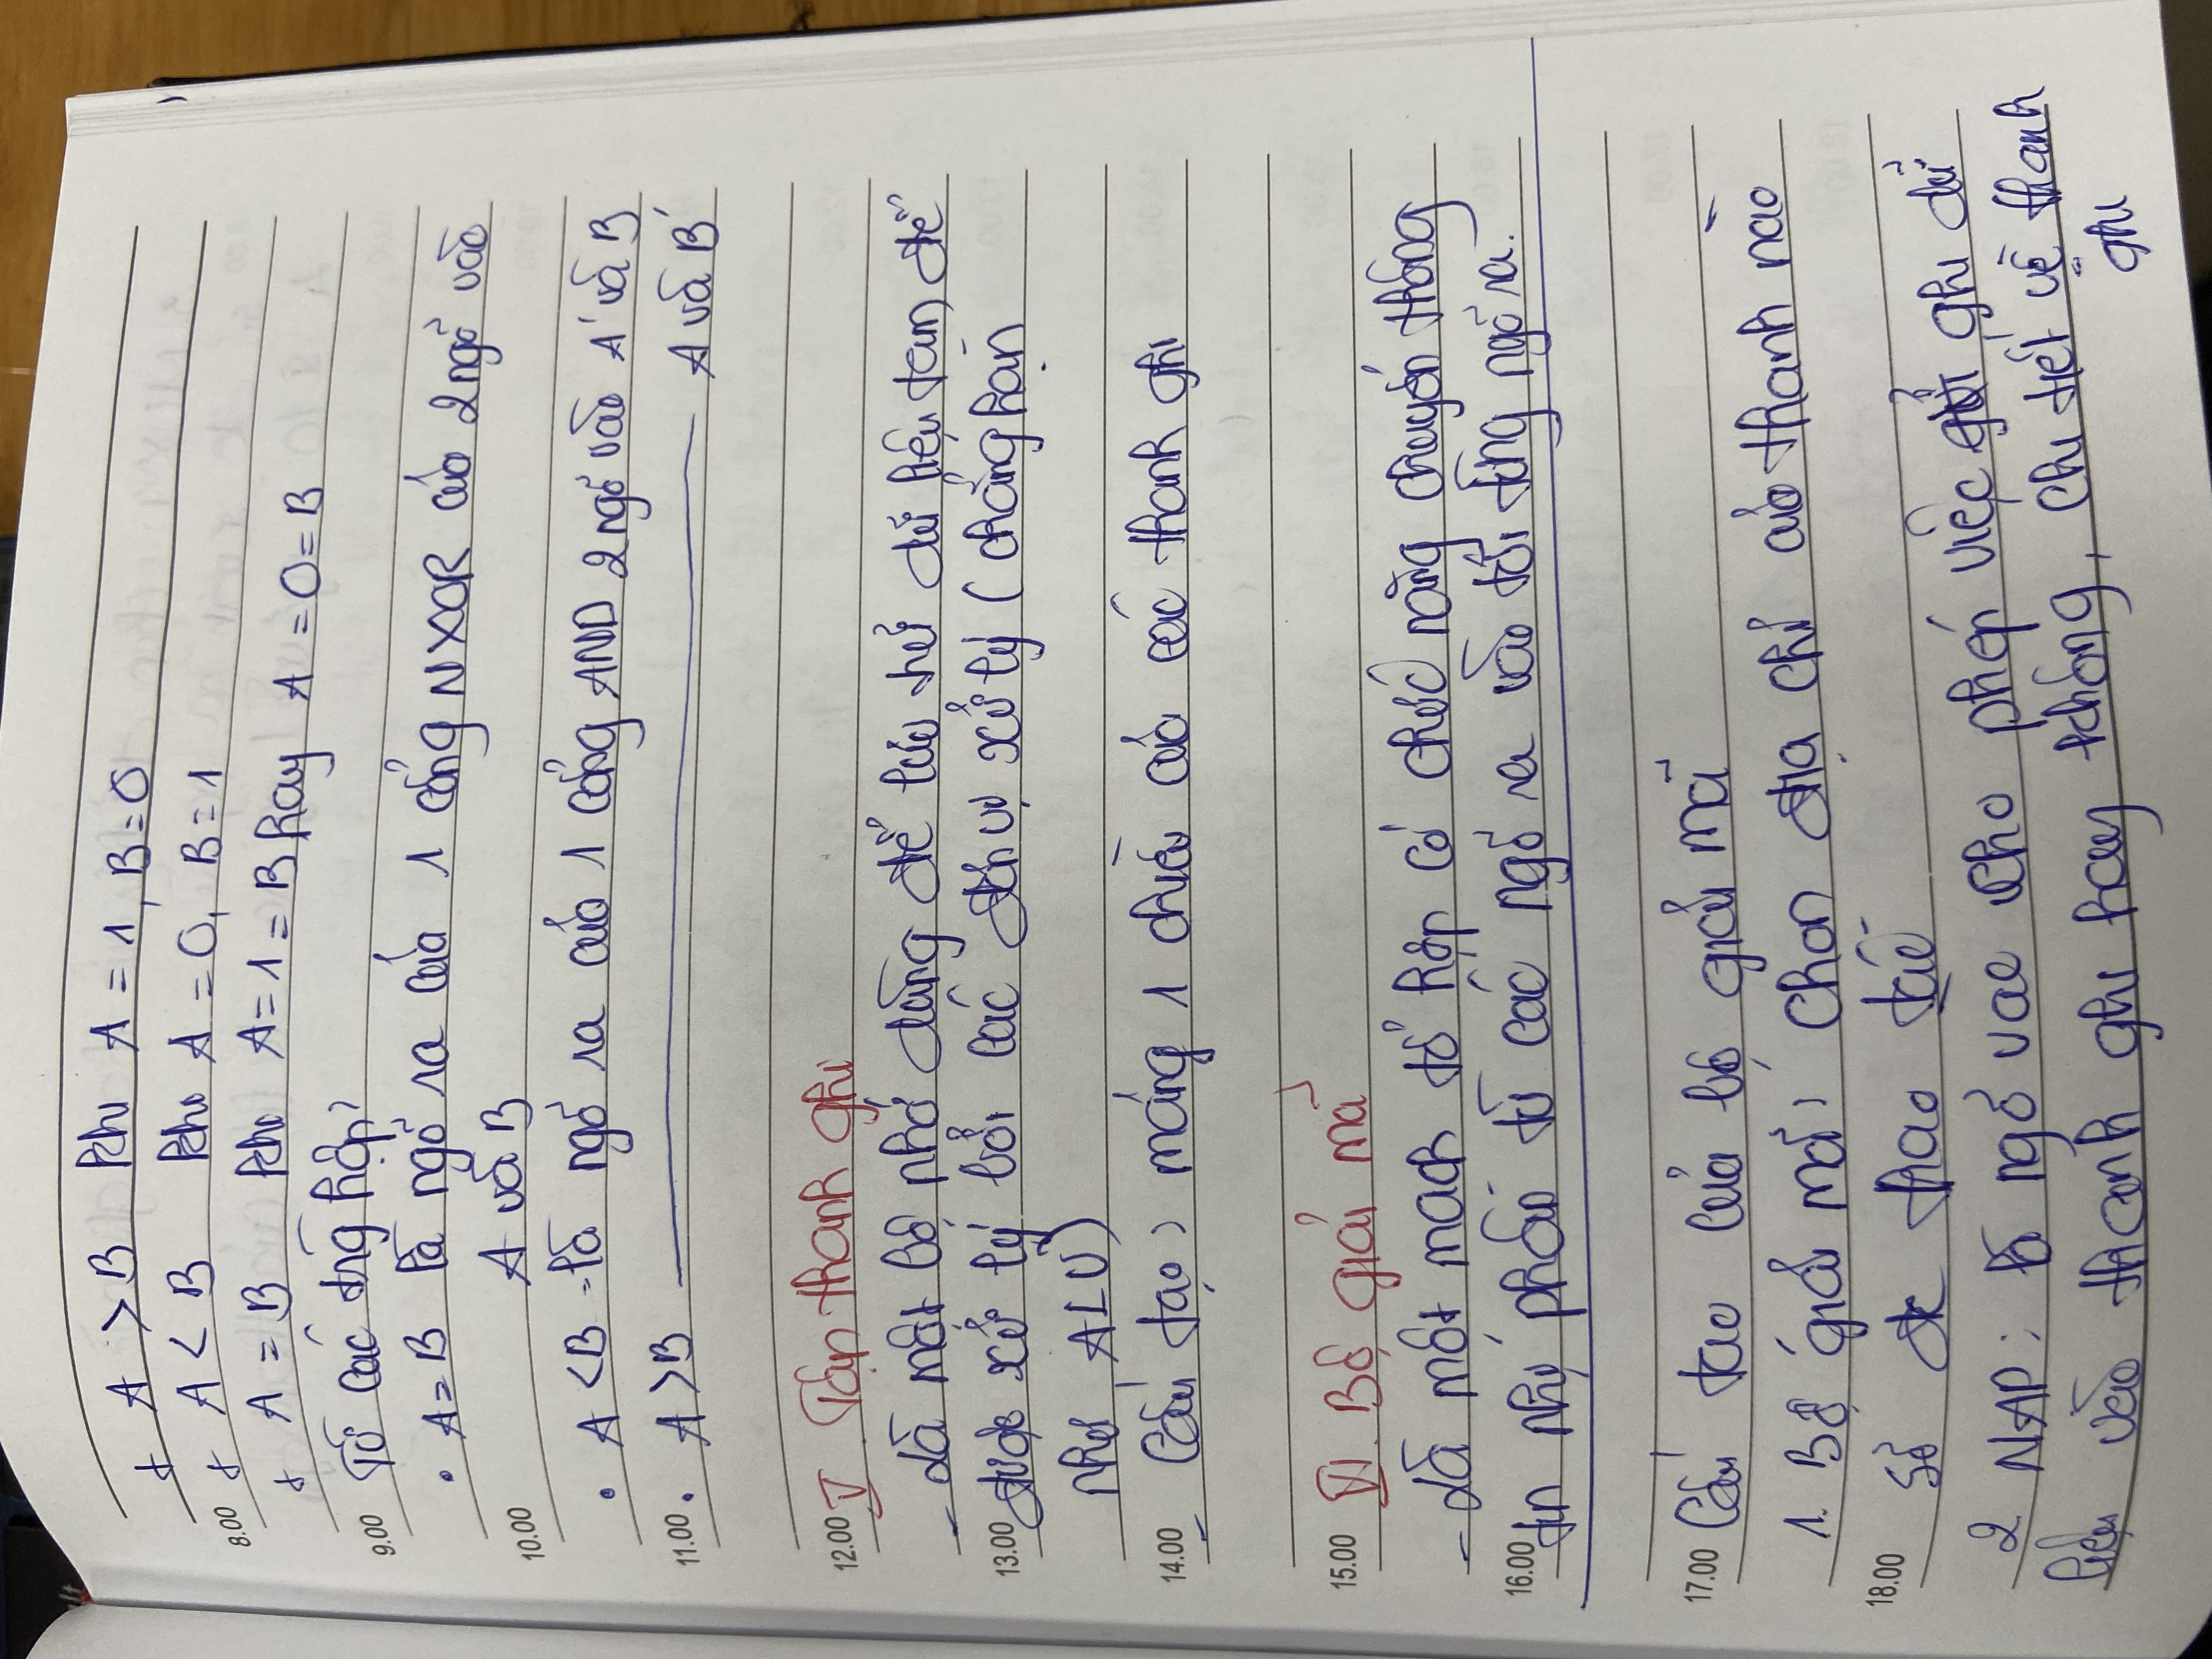 + A > B khi A = 1, B = 0
8.00 + A < B khi A = 0, B = 1
+ A = B khi A = 1 = B hay A = 0 = B
9.00 Từ các trg hợp:
• A = B là ngõ ra của 1 cổng NXOR của 2 ngõ vào
10.00 A và B
• A < B là ngõ ra của 1 cổng AND 2 ngõ vào A' và B
11.00 • A > B ——— A và B'
12.00 V. Tập thanh ghi
- Là một bộ nhớ dùng để lưu trữ dữ liệu tạm để
13.00 được xử lý bởi các đơn vị xử lý (chẳng hạn
như ALU)
14.00 - Cấu tạo: mảng 1 chiều của các thanh ghi
15.00 VI. Bộ giải mã
- Là một mạch tổ hợp có chức năng chuyển thông
16.00 tin nhị phân từ các ngõ ra vào tới từng ngõ ra.
17.00 Cấu tạo của bộ giải mã
1. Bộ giải mã: Chọn địa chỉ của thanh nào
18.00 sẽ đc thao tác
2 NAP: là ngõ vào cho phép việc ghi dữ
liệu vào thanh ghi hay không, chi tiết về thanh
ghi